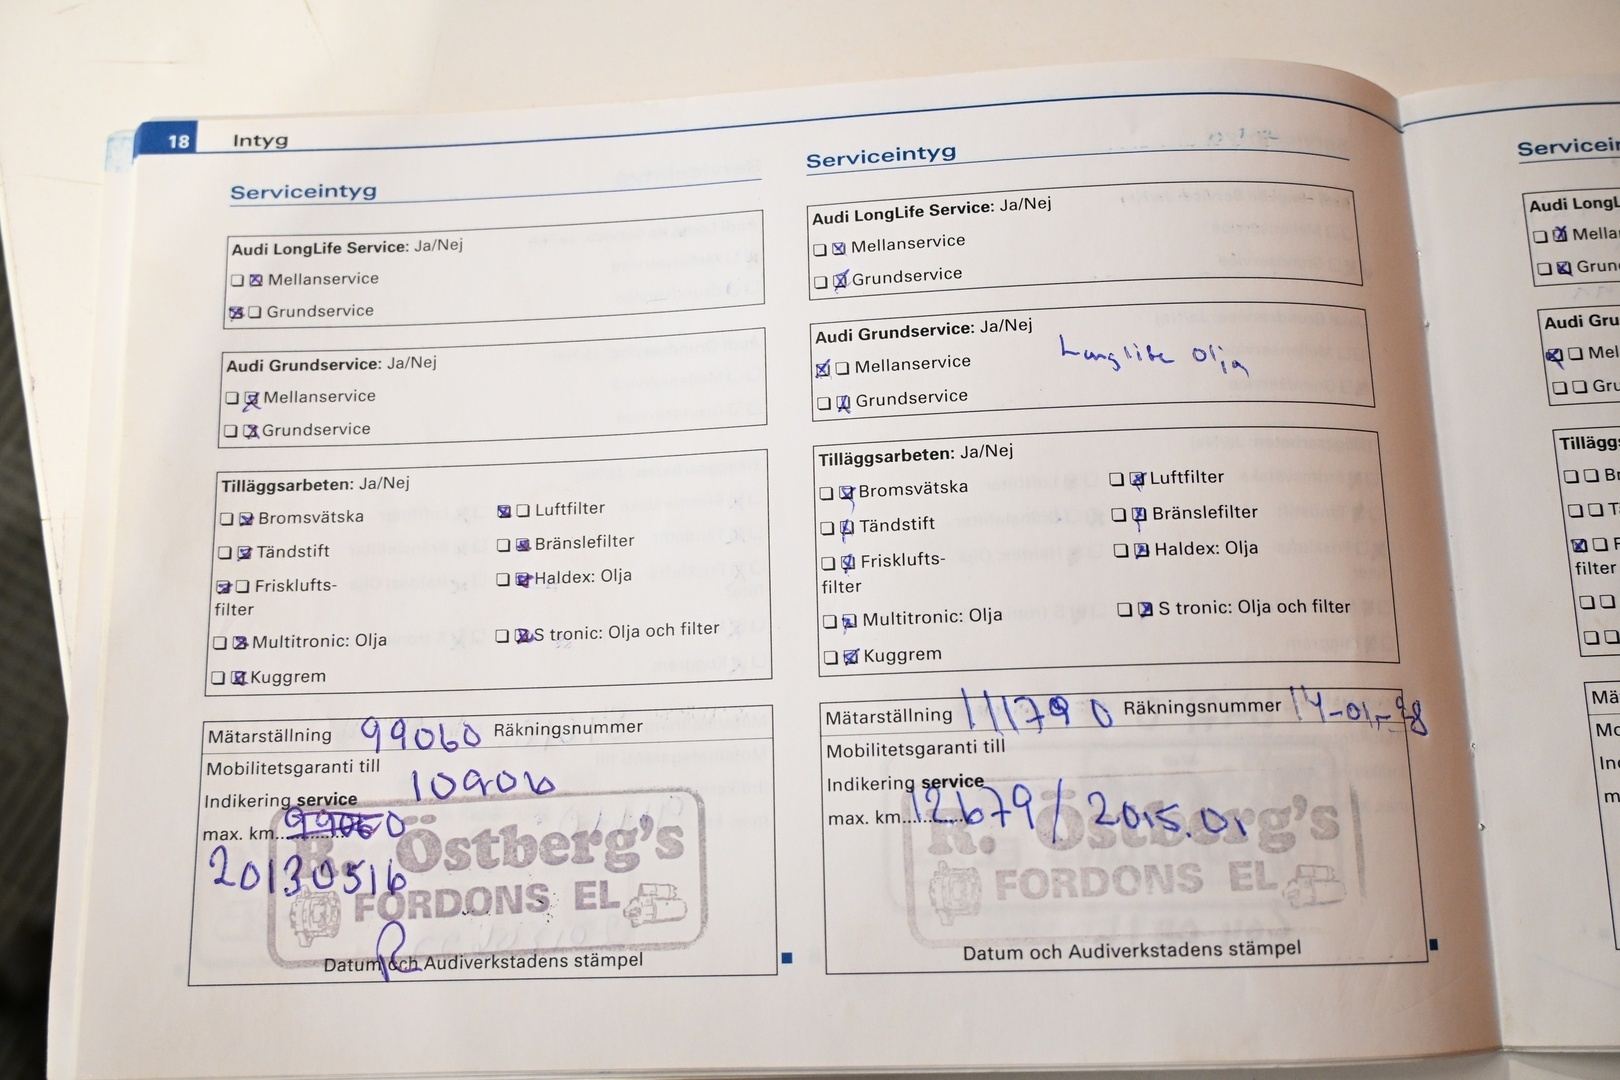 18 Intyg
Serviceintyg
Audi LongLife Service: Ja/Nej
Mellanservice
Grundservice
Audi Grundservice: Ja/Nej
Mellanservice
Grundservice
Tilläggsarbeten: Ja/Nej
Bromsvätska Luftfilter
Tändstift Bränslefilter
Frisklufts- Haldex: Olja
filter
Multitronic: Olja S tronic: Olja och filter
Kuggrem
Mätarställning 99060 Räkningsnummer
Mobilitetsgaranti till
Indikering service
max. km
20130516
R. Östberg's
FORDONS EL
Datum och Audiverkstadens stämpel
Serviceintyg
Audi LongLife Service: Ja/Nej
Mellanservice
Grundservice
Audi Grundservice: Ja/Nej
Mellanservice Longlife olja
Grundservice
Tilläggsarbeten: Ja/Nej
Bromsvätska Luftfilter
Tändstift Bränslefilter
Frisklufts- Haldex: Olja
filter
Multitronic: Olja S tronic: Olja och filter
Kuggrem
Mätarställning 111790 Räkningsnummer 14-01-28
Mobilitetsgaranti till
Indikering service
max. km 12679 / 2015.01
R. Östberg's
FORDONS EL
Datum och Audiverkstadens stämpel
Audi
filter